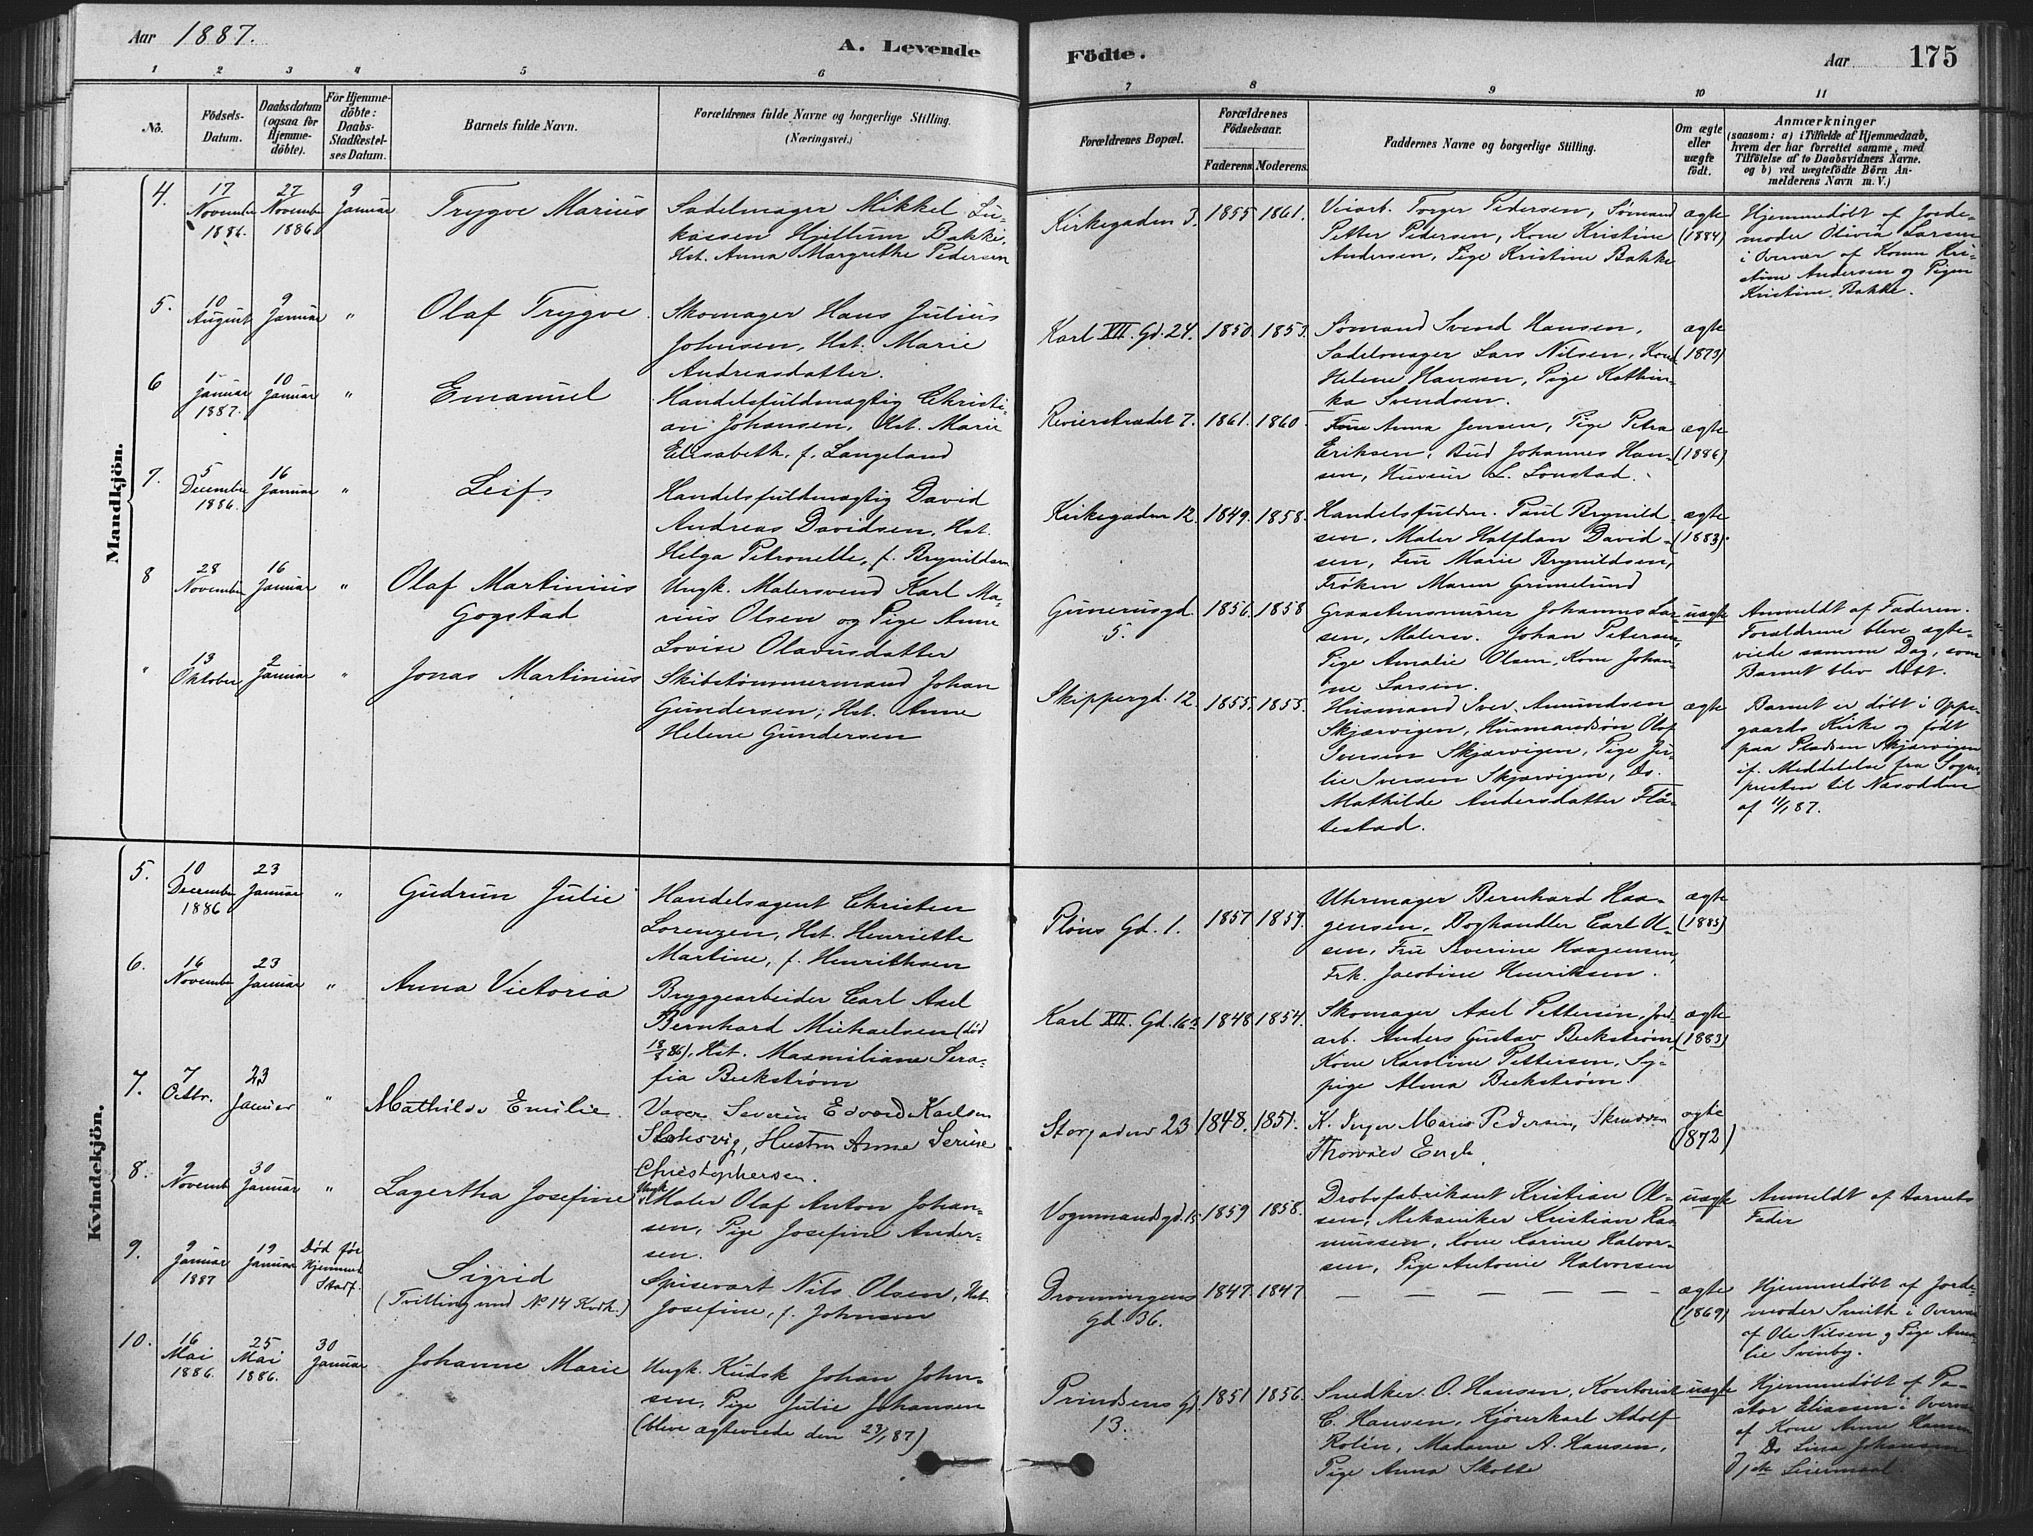 Aar 1887.
A. Levende
Födte.
Aar 175
1 2 3 4 5 6
7 8 9 10 11
No.
Födsels-
Datum.
Daabsdatum
(ogsaa for
Hjemme-
döbte).
For Hjemme-
döbte:
Daabs-
Stadfestel-
ses Datum.
Barnets fulde Navn.
Forældrenes fulde Navne og borgerlige Stilling.
(Næringsvei.)
Forældrenes Bopæl.
Forældrenes
Födselsaar.
Faderens Moderens.
Faddernes Navne og borgerlige Stilling.
Om ægte
eller
uægte
födt.
Anmærkninger
(saasom: a) i Tilfelde af Hjemmedaab,
hvem der har forrettet samme, med
Tilföielse af to Daabsvidners Navne.
og b) ved uægtefödte Börn An-
melderens Navn m. V.)
Mandkjön.
4.
17
November
1886.
27
November
1886.
9
Januar
Trygve Marius
Sadelmager Mikkel Lu-
kassen Hjellum Bakke,
Hst. Anna Margrethe Pedersen
Kirkegaden 3.
1855
1861.
Veiarb. Torger Pedersen, Sømand
Petter Pedersen, Kone Kristine
Andersen, Pige Kristine Bakke
ægte
(1884)
Hjemmedøbt af Jorde-
moder Olivia Larsen
i Overvær af Konen Kri-
stine Andersen og Pigen
Kristine Bakke.
5.
10
August
9
Januar
"
Olaf Trygve
Skomager Hans Julius
Johnsen, Hst. Marie
Andreasdatter.
Karl XII. Gd. 24.
1850.
1853.
Sømand Svend Hansen,
Sadelmager Lars Nilsen, Kone
Helene Hansen, Pige Kathin-
ka Svendsen.
ægte
(1873)
6
1
Januar
1887.
10
Januar
"
Emanuel
Handelsfuldmægtig Christi-
an Johansen, Hst. Marie
Elisabeth, f. Langeland
Revierstrædet 7.
1861.
1860
Frue Anna Jensen, Pige Petra
Eriksen, Bud Johannes Han-
sen, L. Lonstad.
ægte
(1886)
7.
5
December
1886.
16
Januar
"
Leif
Handelsfuldmægtig David
Andreas Davidsen, Hst.
Helga Petronelle, f. Brynildsen
Kirkegaden 12.
1849.
1858.
Handelsfuldm. Paul Brynild-
sen, Maler Halfdan David-
sen, Fru Marie Brynildsen,
Frøken Maren Grimelund
ægte
(1883)
8
28
November
16
Januar
"
Olaf Martinius
Gogstad
Ungk. Malersvend Karl Ma-
rius Olsen og Pige Anne
Lovise Olavusdatter
Gunerusgd.
5.
1856.
1858
Graastensmurer Johannes Lar-
sen, Malersv. Johan Petersen,
Pige Amalie Olsen, Kone Johan-
ne Larsen.
uægte
Anmeldt af Faderen.
Forældrene bleve ægte-
viede samme Dag, som
Barnet blev døbt.
"
13
Oktober
2
Januar
"
Jonas Martinius
Skibstømmermand Johan
Gundersen, Hst. Anne
Helene Gundersen
Skippergd. 12.
1855.
1855.
Husmand Iver Amundsen
Skjærvigen, Husmandssøn Olaf
Iversen Skjærvigen, Pige Ju-
lie Iversen Skjærvigen, Do.
Mathilde Andersdatter Flå-
testad.
ægte
Barnet er døbt i Oppe-
gaards Kirke og født
paa Pladsen Skjærvigen
if. Meddelelse fra Sogne-
presten til Næsodden
af 11/1 87.
Kvindekjön.
5.
10
December
1886
23
Januar
"
Gudrun Julie
Handelsagent Christen
Lorenzen, Hst. Henriette
Martine, f. Henrithsen
Pløns Gd. 1.
1857
1859.
Uhrmager Bernhard Haa-
gensen, Boghandler Carl Ol-
sen, Fru Severine Haagensen,
Frk. Jacobine Henriksen.
ægte
(1885)
6.
16
November
23
Januar
"
Anna Victoria
Bryggearbeider Carl Axel
Bernhard Michaelsen (død
18/5 86), Hst. Maxmiliane Sera-
fia Beckstrøm
Karl XII. Gd. 16
1848
1854.
Skomager Axel Pettersen, Jord-
arb. Anders Gustav Beckstrøm,
Kone Karoline Pettersen, Sy-
pige Alma Beckstrøm
ægte
(1883)
7.
7
Octbr.
23
Januar
"
Mathilde Emilie.
Væver Severin Edvard Karlsen
Stoksvig, Hustru Anne Serine
Christophersen.
Storgaden 23
1848.
1851.
K. Inger Marie Pedersen, Skrædder
Thorvald Engh
ægte
(1872)
8.
9
Novemb
30
Januar
"
Lagertha Josefine
Ungk.
Maler Olaf Anton Johan-
sen, Pige Josefine Ander-
sen.
Vognmandsgd. 15
1859
1858.
Drobsfabrikant Kristian Ol-
sen, Mekaniker Kristian Ras-
mussen, Kone Karine Halvor-
sen, Pige Antonie Halvorsen
uægte
Anmeldt af Barnets
Fader
9.
9
Januar
1887
19
Januar
Død før
Hjemmed.
Stadf.
Sigrid
(Tvilling med No 14 Kvdk.)
Spisevært Nils Olsen, Hst.
Josefine, f. Johnsen
Dronningens
Gd. 36.
1847.
1847
— — — — — —
ægte
(1869)
Hjemmedøbt af Jorde-
moder Smith i Overvær
af Ole Nilsen og Pige Ama-
lie Svenby.
10.
16
Mai
1886.
25
Mai
1886.
30
Januar
Johanne Marie
Ungk. Kudsk Johan John-
sen, Pige Julie Johansen
(bleve ægteviede den 23/1 87)
Prindsens Gd.
13.
1851
1856.
Snedker O. Hansen, Kontorist
C. Hansen, Kjørerkarl Adolf
Rolin, Madame A. Hansen,
Pige Anna Skotte
uægte
Hjemmedøbt af Pa-
stor Eliassen i Overvær
af Kone Anne Hansen
Do Lina Johansen